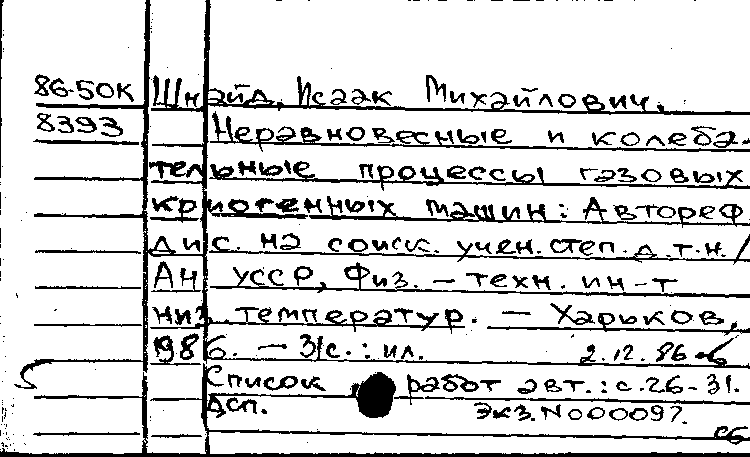 86-50К Шнайд, Исаак Михайлович.
8393 Неравновесные и колеба-
тельные процессы газовых
криогенных машин: Автореф.
дис. на соиск. учен. степ. д.т.н/
АН УССР, Физ. - техн. ин-т
низ. температур. - Харьков,
1986. - 31с.: ил. 2.12.86
Список работ авт.: с.26-31.
Дсп. Экз. N000097.